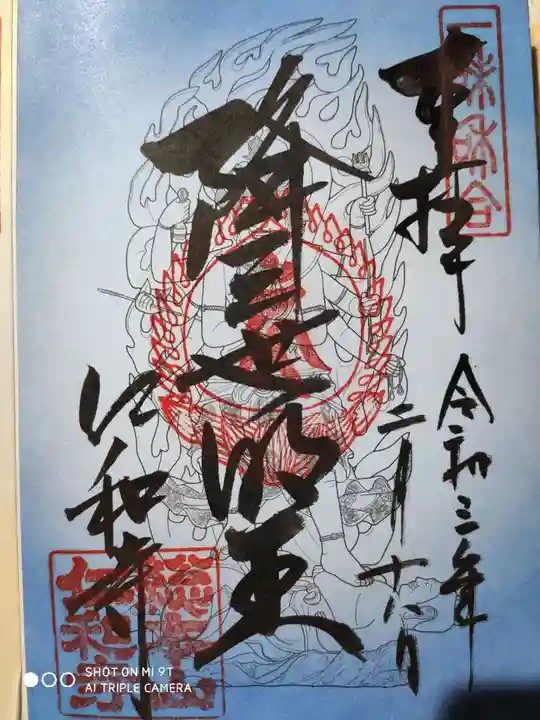 一味和合
奉拝
令和三年
二月十六日
降三世明王
SHOT ON MI 9T
AI TRIPLE CAMERA